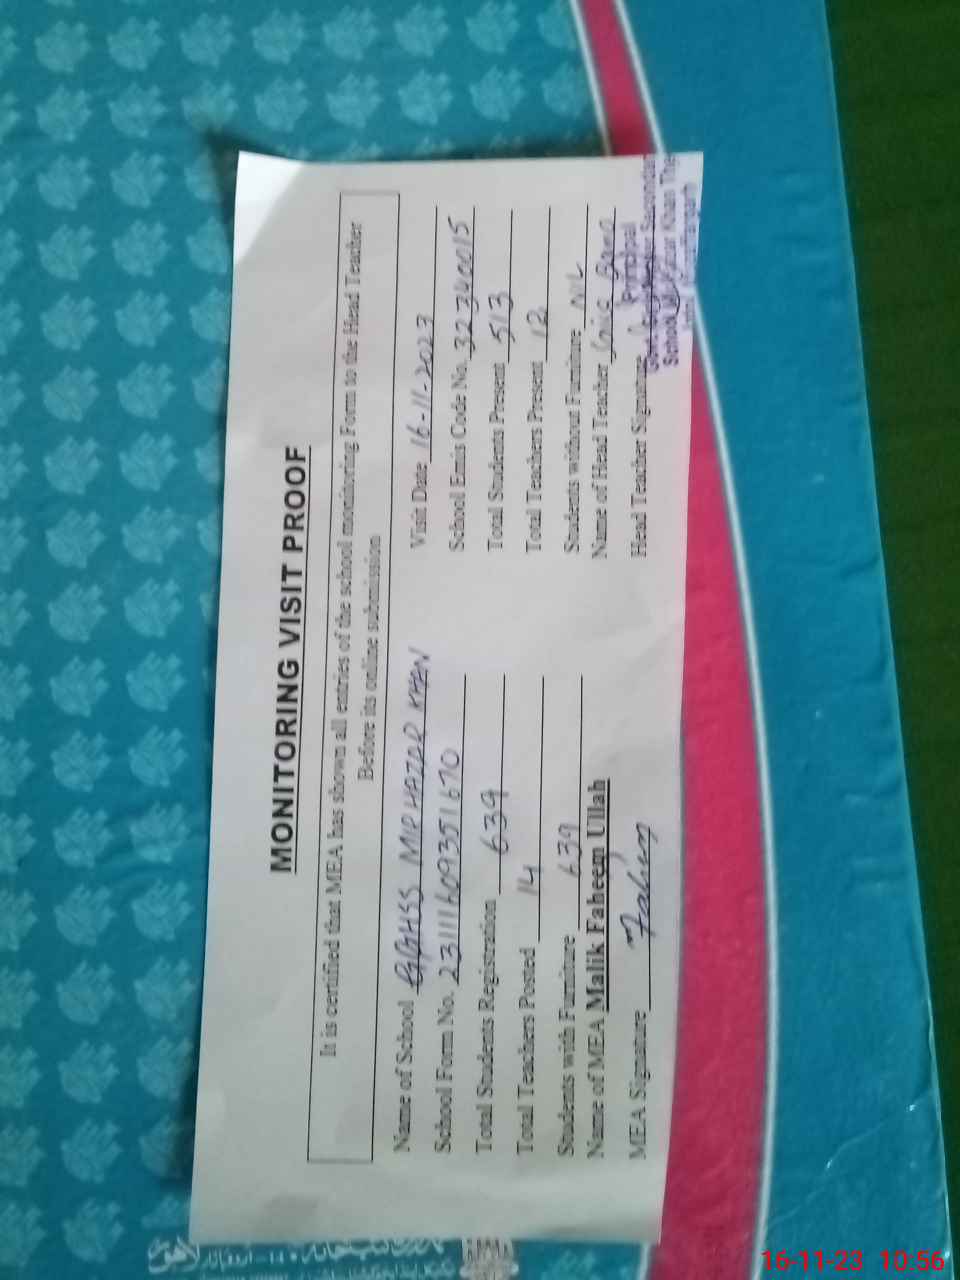 MONITORING VISIT PROOF
It is certified that MEA has shown all entries of the school monitoring Form to the Head Teacher
Before its online submission
Name of School GGHSS MIRHAZAR KHAN Visit Date 16-11-2023
School Form No. 231116093511670 School Emis Code No. 32340015
Total Students Registration 639 Total Students Present 513
Total Teachers Posted 14 Total Teachers Present 12
Students with Furniture 639 Students without Furniture NIL
Name of MEA Malik Faheem Ullah Name of Head Teacher Bano
MEA Signature Fahim Head Teacher Signature
Principal
Secondary
School Khan The
16-11-23 10:56